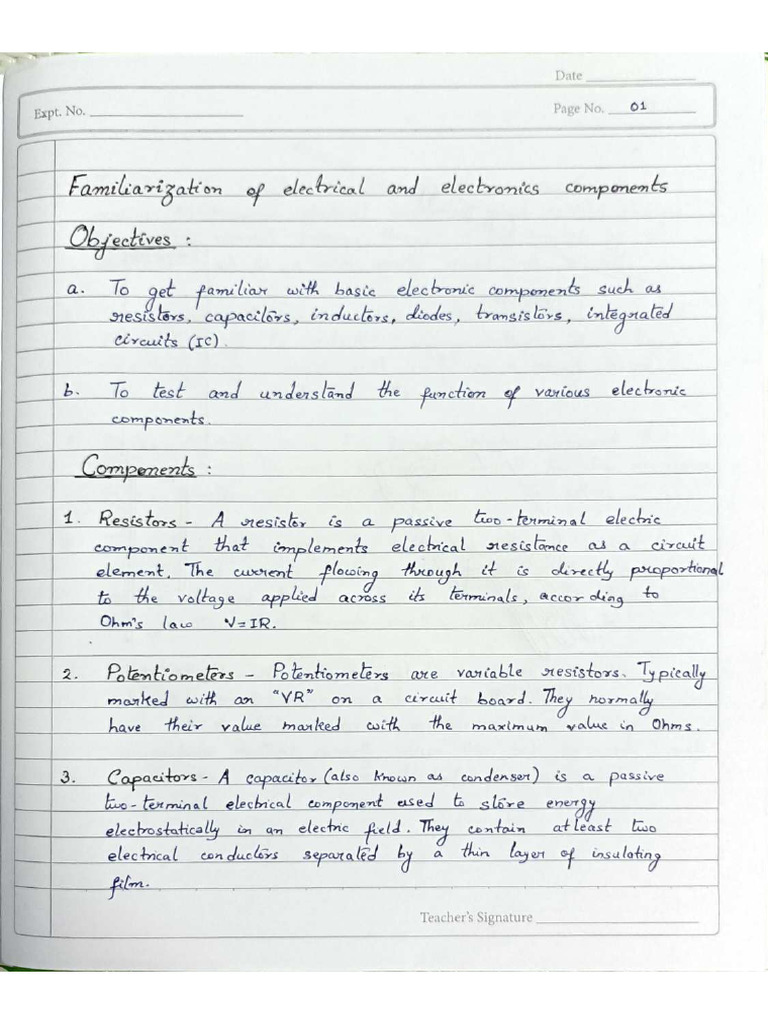 Date
Expt. No.
Page No. 01
Familiarization of electrical and electronics components
Objectives :
a. To get familiar with basic electronic components such as
resistors, capacitors, inductors, diodes, transistors, integrated
circuits (IC).
b. To test and understand the function of various electronic
components.
Components :
1. Resistors - A resistor is a passive two-terminal electric
component that implements electrical resistance as a circuit
element. The current flowing through it is directly proportional
to the voltage applied across its terminals, according to
Ohm's law V=IR.
2. Potentiometers - Potentiometers are variable resistors. Typically
marked with an "VR" on a circuit board. They normally
have their value marked with the maximum value in Ohms.
3. Capacitors - A capacitor (also known as condenser) is a passive
two-terminal electrical component used to store energy
electrostatically in an electric field. They contain atleast two
electrical conductors separated by a thin layer of insulating
film.
Teacher's Signature